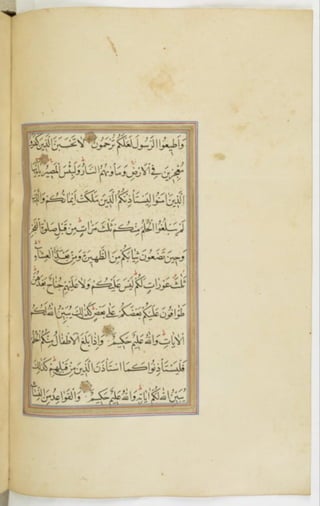 وَأَطِيعُوا الرَّسُولَ لَعَلَّكُمْ تُرْحَمُونَ لَا تَحْسَبَنَّ الَّذِينَ كَفَرُوا
مُعْجِزِينَ فِي الْأَرْضِ وَمَأْوٰيهُمُ النَّارُ وَلَبِئْسَ الْمَصِيرُ يَا أَيُّهَا
الَّذِينَ آمَنُوا لِيَسْتَأْذِنْكُمُ الَّذِينَ مَلَكَتْ أَيْمَانُكُمْ وَالَّذِينَ
لَمْ يَبْلُغُوا الْحُلُمَ مِنْكُمْ ثَلٰثَ مَرَّاتٍ مِنْ قَبْلِ صَلٰوةِ الْفَجْرِ
وَحِينَ تَضَعُونَ ثِيَابَكُمْ مِنَ الظَّهِيرَةِ وَمِنْ بَعْدِ صَلٰوةِ الْعِشَاءِ
ثَلٰثُ عَوْرَاتٍ لَكُمْ لَيْسَ عَلَيْكُمْ وَلَا عَلَيْهِمْ جُنَاحٌ بَعْدَهُنَّ
طَوَّافُونَ عَلَيْكُمْ بَعْضُكُمْ عَلٰى بَعْضٍ كَذٰلِكَ يُبَيِّنُ اللّٰهُ لَكُمُ
الْآيَاتِ وَاللّٰهُ عَلِيمٌ حَكِيمٌ وَإِذَا بَلَغَ الْأَطْفَالُ مِنْكُمُ الْحُلُمَ
فَلْيَسْتَأْذِنُوا كَمَا اسْتَأْذَنَ الَّذِينَ مِنْ قَبْلِهِمْ كَذٰلِكَ
يُبَيِّنُ اللّٰهُ لَكُمْ آيَاتِهِ وَاللّٰهُ عَلِيمٌ حَكِيمٌ وَالْقَوَاعِدُ مِنَ النِّسَاءِ